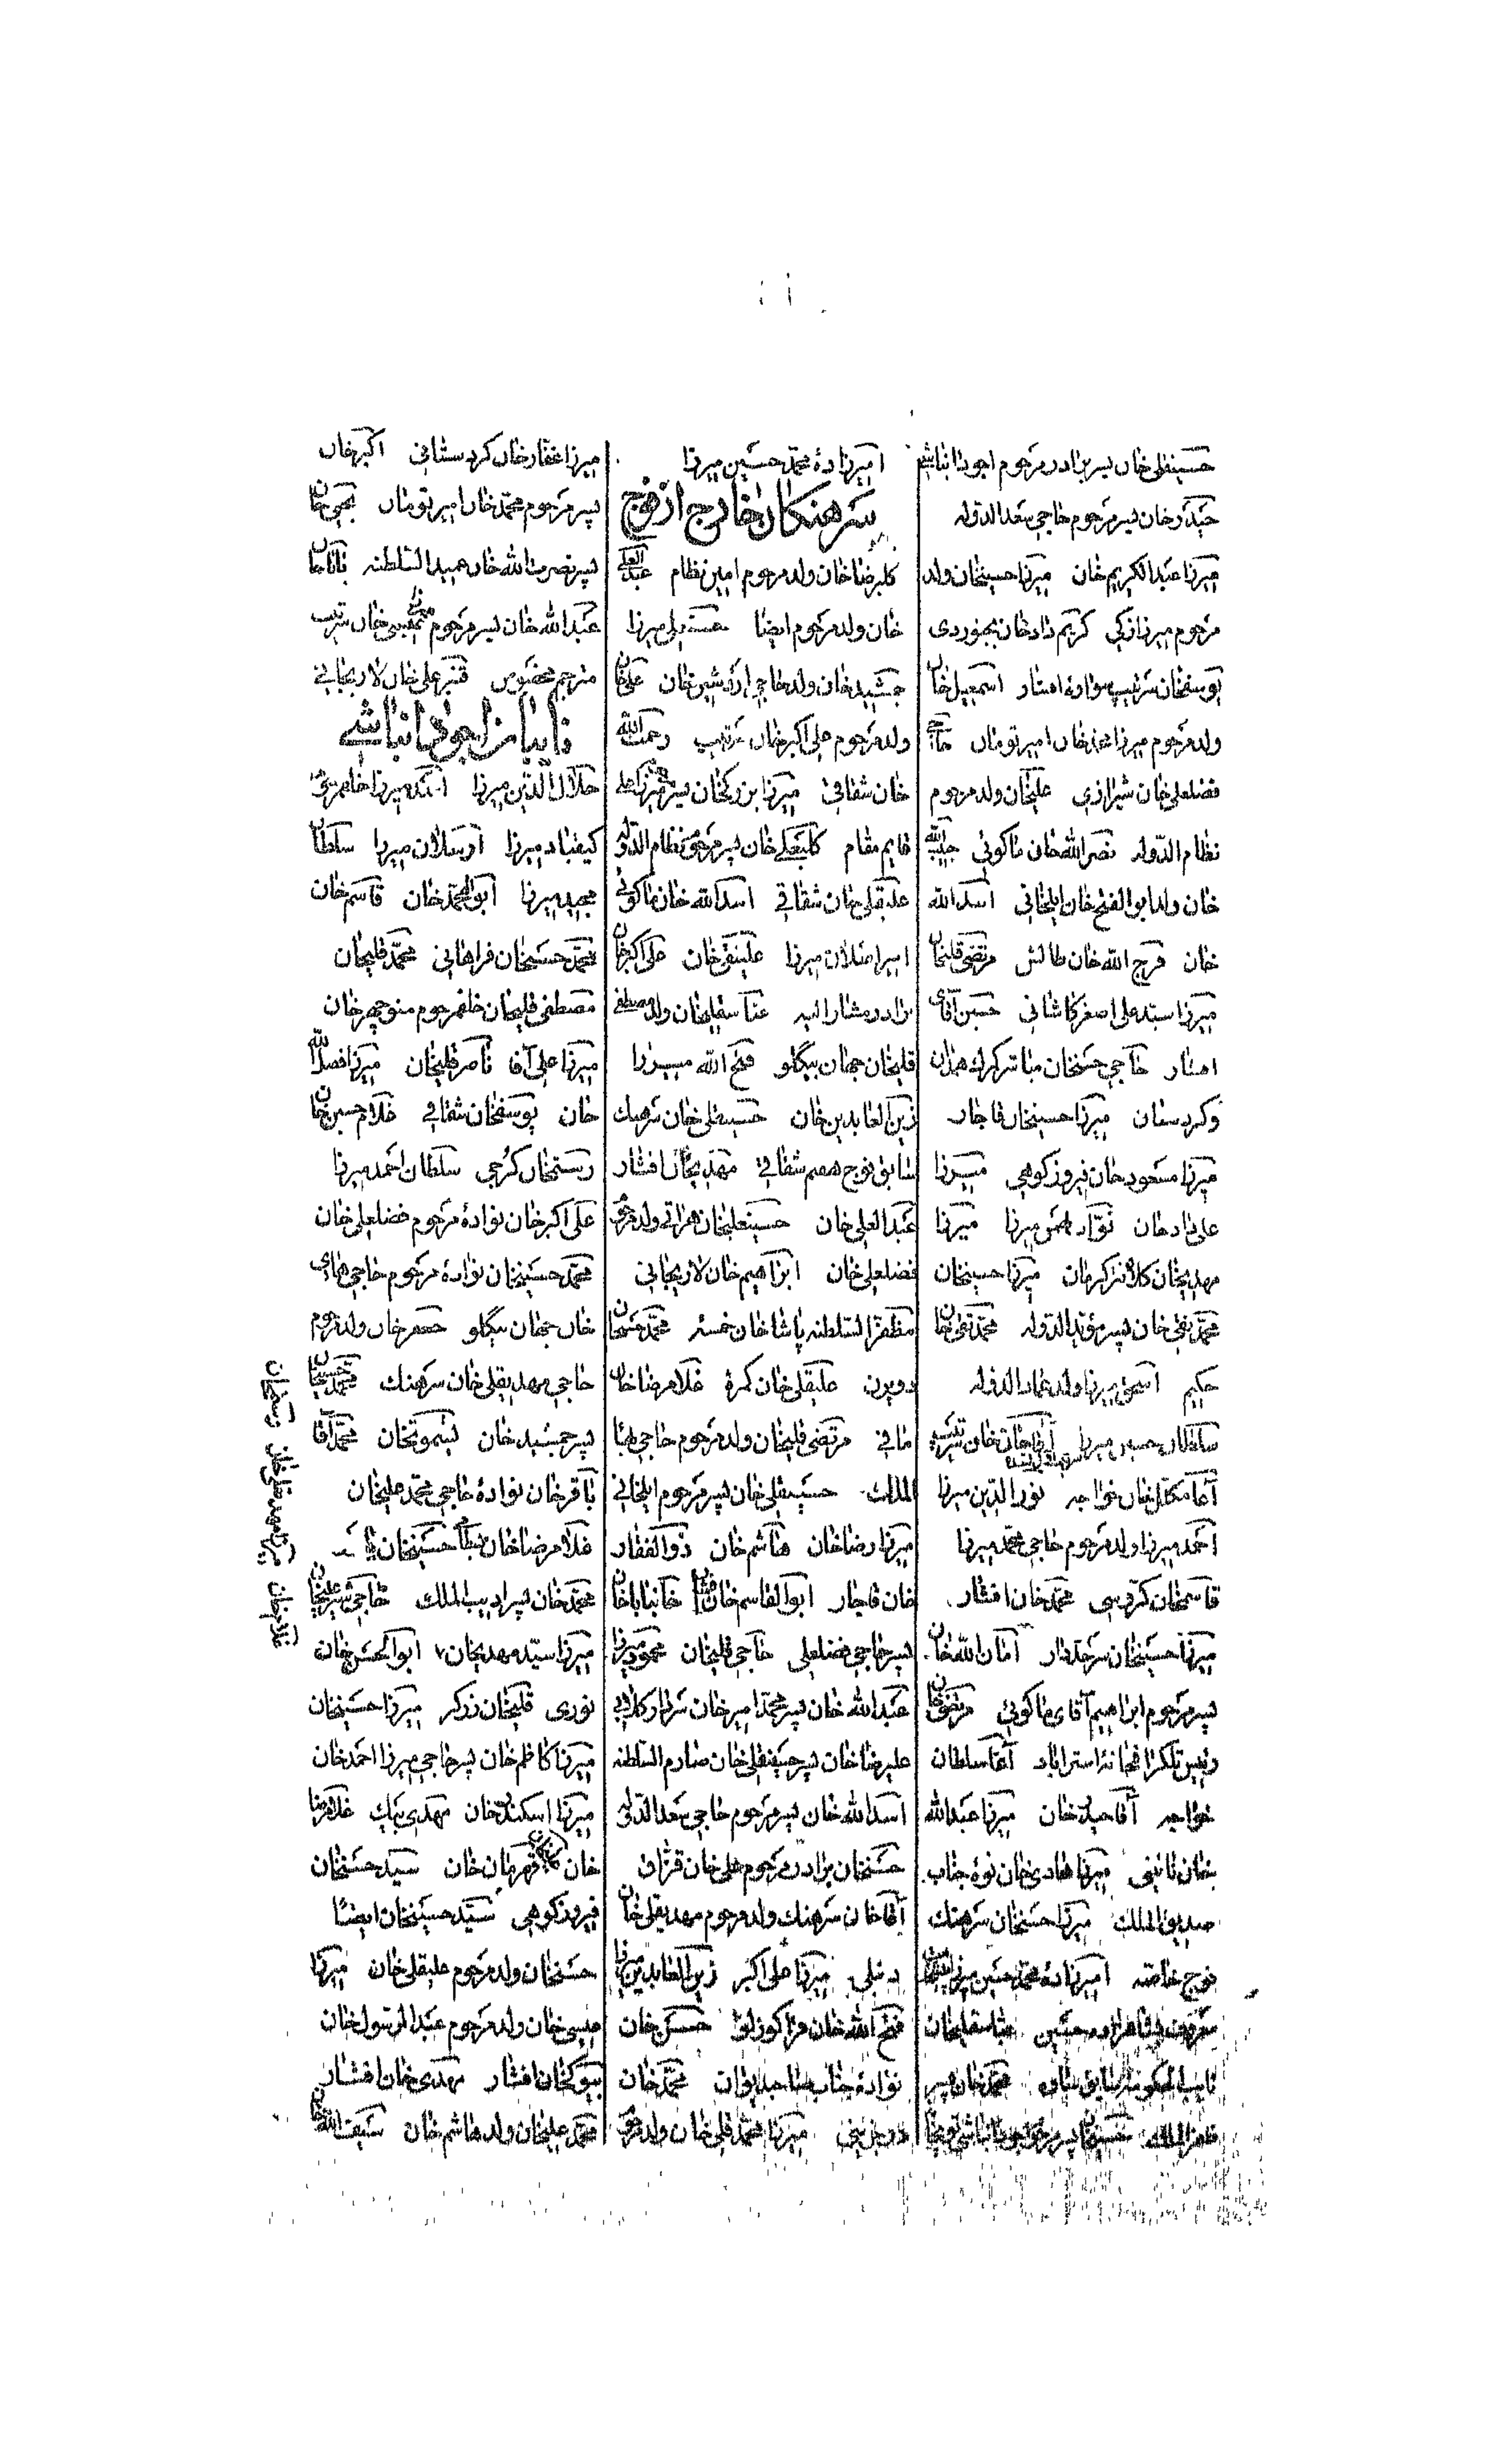 حسینقلی خان پسر برادر مرحوم اجودانباشی
حیدر خان پسر مرحوم حاجی سعد الدوله
میرزا عبدالکریم خان میرزا حسینخان ولد
مرحوم میرزا زکی کریم داد خان بجنوردی
یوسفخان سرتیپ سواره افشار اسمعیل خان
ولد مرحوم میرزا محمد خان امیرتومان حاجی
فضلعلی خان شیرازی علیخان ولد مرحوم
نظام الدوله نصر الله خان ماکوئی حبیب الله
خان ولد ابو الفتح خان ایلخانی اسد الله
خان فرج الله خان طالش مرتضی قلیخان
میرزا سید علی اصغر کاشانی حسین آقای
افشار حاجی حسنخان مباشر گمرک همدان
و کردستان میرزا حسینخان قاجار
میرزا مسعود خان فیروزکوهی میرزا
علی داد خان نواد بهمن میرزا میرزا
مهدیخان کلانتر کرمان میرزا حسینخان
محمد تقی خان پسر مؤید الدوله محمد تقی خان
حکیم اسحق میرزا ولد عماد الدوله
سلطان حسین میرزا آقا جان خان
آغا مکائیل خان خواجه نور الدین میرزا
احمد میرزا ولد مرحوم حاجی محمد میرزا
قاسمخان محمد خان افشار
میرزا حسینخان سرحددار امان الله خان
پسر مرحوم ابراهیم آقای ماکوئی مرتضی خان
رئیس تلگرافخانه استراباد آغا سلطان
خواجه آقا حیدر خان میرزا عبد الله
خان نائینی میرزا هادی خان نوه جناب
صدیق الملک میرزا حسنخان سرهنک
فوج خاصه امیرزاده محمد حسین میرزا
عباسقلیخان
نایب الحکومه سابق ساوه محمد خان پسر
ظفر الملک حسینخان پسر مرحوم
امیرزاده محمد حسین میرزا
سرهنکان خارج از فوج
کلبرضا خان ولد مرحوم امین نظام عبد العلی
خان ولد مرحوم ایضا میرزا
جمشید خان ولد حاجی اردشیر خان علی خان
ولد مرحوم علی اکبر خان سرتیپ رحمت الله
خان شقاقی میرزا بزرکخان پسر میرزا علی
قایم مقام کلبعلی خان پسر مرحوم نظام الدوله
علیقلی خان شقاقی اسد الله خان ماکوئی
امیر اصلان میرزا علینقی خان علی اکبر خان
برادر مشار الیه عباسقلیخان ولد مصطفی
قلیخان جهان بیگلو فتح الله میرزا
زین العابدین خان حسینقلی خان سرهنک
سابق فوج هفتم شقاقی مهدیخان افشار
عبد العلی خان حسینعلیخان هراتی ولد مرحوم
فضلعلی خان ابراهیم خان لاریجانی
مظفر السلطنه پاشا خان خمسه محمد حسنخان
دویرن علیقلی خان کمره غلامرضا خان
مافی مرتضی قلیخان ولد مرحوم حاجی بهاء
الملک حسینقلی خان پسر مرحوم ایلخانی
میرزا رضا خان هاشم خان ذوالفقار
خان قاجار ابو القاسم خان خانبابا خان
پسر حاجی فضلعلی حاجی قلیخان محمود میرزا
عبد الله خان پسر محمد امیر خان سردار کلارانی
علیرضا خان پسر حسینقلی خان صارم السلطنه
اسد الله خان پسر مرحوم حاجی سعد الدوله
حسنخان برادر مرحوم علی خان قزاق
آقا خان سرهنک ولد مرحوم مهدیقلی خان
دنبلی میرزا علی اکبر زین العابدین میرزا
فتح الله خان قراگوزلو حسن خان
نواده جناب صاحبدیوان محمد خان
میرزا محمد قلی خان ولد مرحوم
میرزا غفار خان کردستانی اکبر خان
پسر مرحوم محمد خان امیرتومان یحیی خان
پسر نصرت الله خان عمید السلطنه بابا خان
عبد الله خان پسر مرحوم خان سرتیپ
مترجم مخصوص قنبر علی خان لاریجانی
نایبان اجودانباشی
جلال الدین میرزا اسد میرزا
کیقباد میرزا ارسلان میرزا سلطان
مجید میرزا ابو المحمد خان قاسم خان
محمد حسنخان فراهانی محمد قلیخان
مصطفی قلیخان خلف مرحوم منوچهر خان
میرزا علی آقا ناصر قلیخان میرزا فضل الله
خان یوسفخان شقاقی غلامحسین خان
رستمخان گرجی سلطان احمد میرزا
علی اکبر خان نواده مرحوم فضلعلی خان
محمد حسینخان نواده مرحوم حاجی
خان جهان بیگلو جعفر خان ولد مرحوم
حاجی مهدیقلی خان سرهنک محمد حسینخان
پسر جمشید خان محمد آقا
باقر خان نواده حاجی محمد علیخان
غلامرضا خان حسینخان
محمد خان پسر ادیب الملک حاجی شیر علیخان
میرزا سید مهدیخان ابو الحسن خان
نوری قلیخان زرگر میرزا حسینخان
میرزا کاظم خان پسر حاجی میرزا احمد خان
میرزا اسکندر خان مهدی بیک غلامرضا
خان قهرمان خان سید حسنخان
فیروزکوهی سید حسینخان ایضا
حسنخان ولد مرحوم علیقلی خان میرزا
عیسی خان ولد مرحوم عبد الرسول خان
بیوکخان افشار مهدی خان افشار
محمد علیخان ولد هاشم خان سیف الله خان